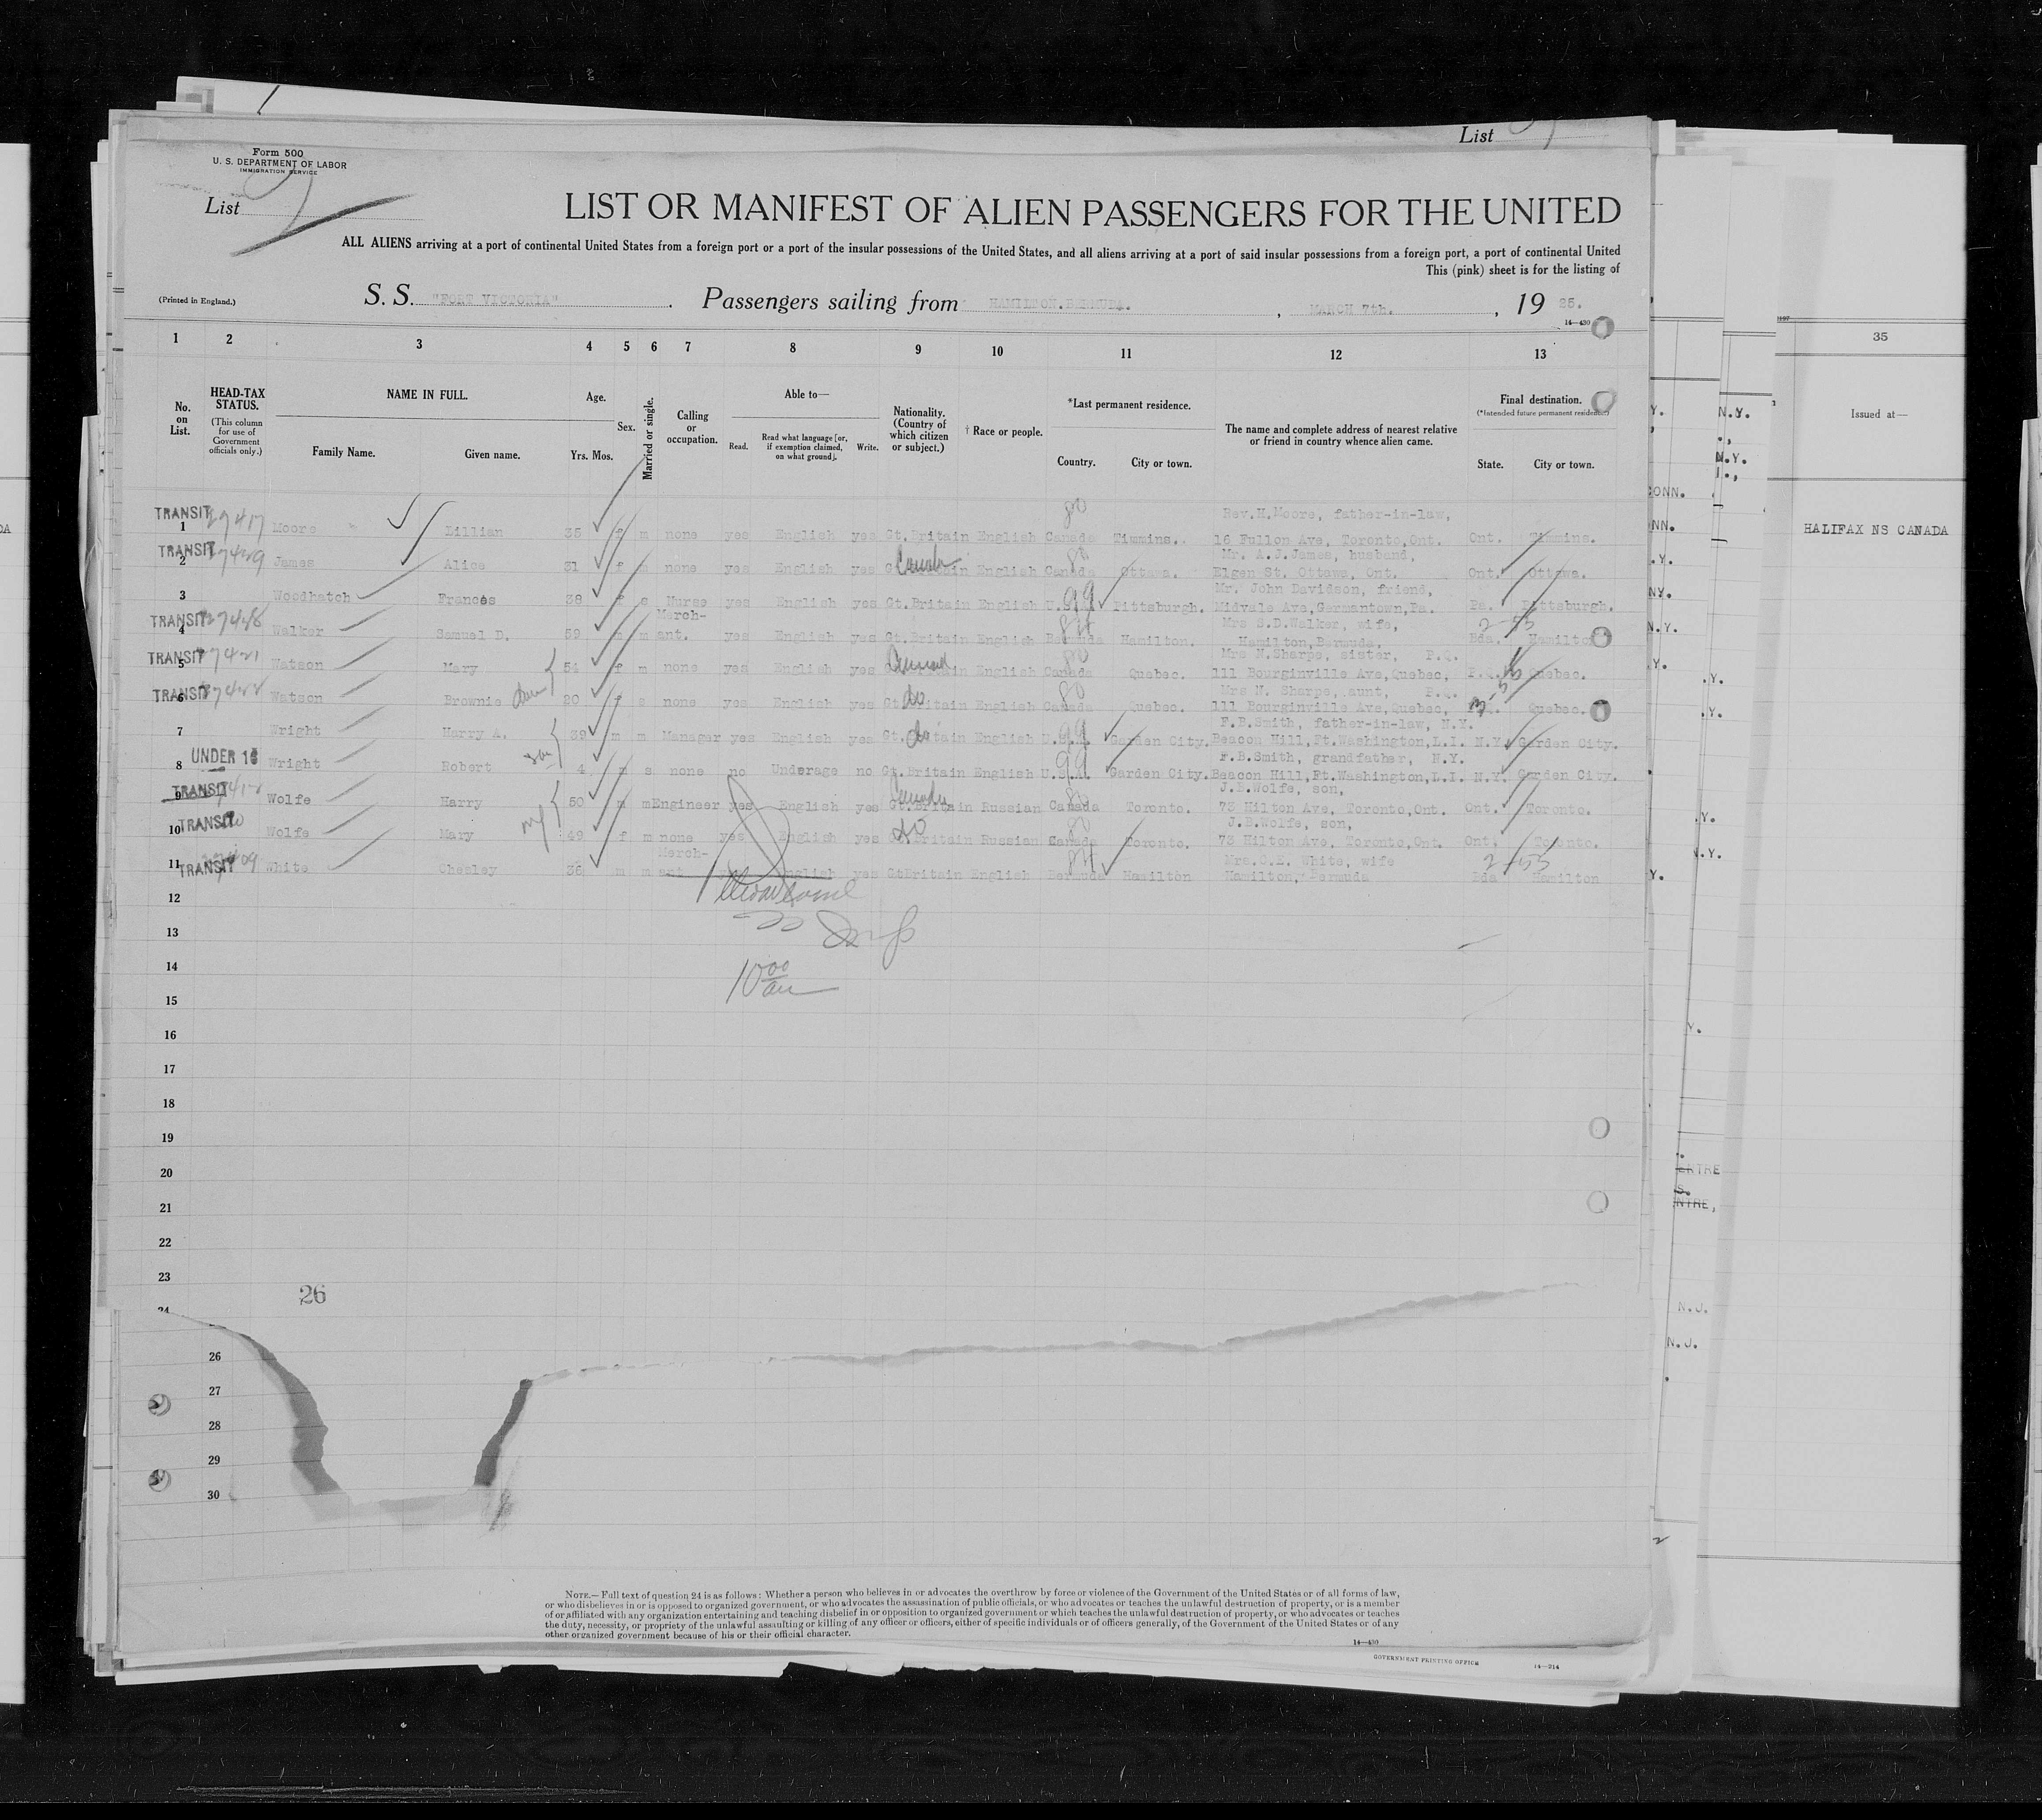 List
Form 500
U. S. DEPARTMENT OF LABOR
IMMIGRATION SERVICE
List
LIST OR MANIFEST OF ALIEN PASSENGERS FOR THE UNITED
ALL ALIENS arriving at a port of continental United States from a foreign port or a port of the insular possessions of the United States, and all aliens arriving at a port of said insular possessions from a foreign port, a port of continental United
This (pink) sheet is for the listing of
(Printed in England.) S. S. "FORT VICTORIA" . Passengers sailing from HAMILTON.BERMUDA. , MARCH 7th. , 19 25.
14—430
1 2 3 4 5 6 7 8 9 10 11 12 13
No. on List.
HEAD-TAX STATUS.
(This column for use of Government officials only.)
NAME IN FULL.
Family Name. Given name.
Age.
Yrs. Mos.
Sex.
Married or single.
Calling or occupation.
Able to—
Read. Read what language [or, if exemption claimed, on what ground]. Write.
Nationality. (Country of which citizen or subject.)
† Race or people.
*Last permanent residence.
Country. City or town.
The name and complete address of nearest relative or friend in country whence alien came.
Final destination.
(*Intended future permanent residence.)
State. City or town.
80 Rev.H.Moore, father-in-law,
TRANSIT 1 Moore Lillian 35 f m none yes English yes Gt.Britain English Canada Timmins. 16 Fullon Ave, Toronto,Ont. Ont. Timmins.
80 Mr. A.J.James, husband,
TRANSIT 2 James Alice 31 f m none yes English yes Canada English Canada Ottawa. Elgen St. Ottawa, Ont. Ont. Ottawa.
99 Mr. John Davidson, friend,
3 Woodhatch Frances 38 f s Nurse yes English yes Gt.Britain English U.S.A. Pittsburgh. Midvale Ave,Germantown,Pa. Pa. Pittsburgh.
Merch- 84 Mrs S.D.Walker, wife, 2-53
TRANSIT 4 Walker Samuel D. 59 m m ant. yes English yes Gt.Britain English Bermuda Hamilton. Hamilton,Bermuda, Bda. Hamilton
80 Mrs N.Sharpe, sister, P.Q.
TRANSIT 5 Watson Mary 54 f m none yes English yes English Canada Quebec. 111 Bourginville Ave,Quebec, P.Q. Quebec.
80 Mrs N. Sharpe, aunt, P.Q.
TRANSIT 6 Watson Brownie dau 20 f s none yes English yes do English Canada Quebec. 111 Bourginville Ave,Quebec, Quebec.
99 F.B.Smith, father-in-law, N.Y.
7 Wright Harry A. 39 m m Manager yes English yes Gt. do English U.S.A. Garden City. Beacon Hill,Pt.Washington,L.I. N.Y. Garden City.
99 F.B.Smith, grandfather, N.Y.
UNDER 16 8 Wright Robert son 4 m s none no Underage no Gt.Britain English U.S.A. Garden City. Beacon Hill,Pt.Washington,L.I. N.Y. Garden City.
80 J.B.Wolfe, son,
TRANSIT 9 Wolfe Harry 50 m m Engineer yes English yes Canada Russian Canada Toronto. 73 Hilton Ave, Toronto,Ont. Ont. Toronto.
80 J.B.Wolfe, son,
10 TRANSIT Wolfe Mary 49 f m none yes English yes do Russian Canada Toronto. 73 Hilton Ave, Toronto,Ont. Ont. Toronto.
Merch- 84 Mrs.C.E. White, wife 2-53
11 TRANSIT White Chesley 36 m m ant English yes GtBritain English Bermuda Hamilton Hamilton, Bermuda Bda Hamilton
12
13
14
10 00
15
16
17
18
19
20
21
22
23
26
24
26
27
28
29
30
NOTE.—Full text of question 24 is as follows: Whether a person who believes in or advocates the overthrow by force or violence of the Government of the United States or of all forms of law,
or who disbelieves in or is opposed to organized government, or who advocates the assassination of public officials, or who advocates or teaches the unlawful destruction of property, or is a member
of or affiliated with any organization entertaining and teaching disbelief in or opposition to organized government or which teaches the unlawful destruction of property, or who advocates or teaches
the duty, necessity, or propriety of the unlawful assaulting or killing of any officer or officers, either of specific individuals or of officers generally, of the Government of the United States or of any
other organized government because of his or their official character.
14—430
GOVERNMENT PRINTING OFFICE 14—914
35
Issued at—
HALIFAX NS CANADA
CONN.
N.Y.
N.Y.
N.J.
N.J.